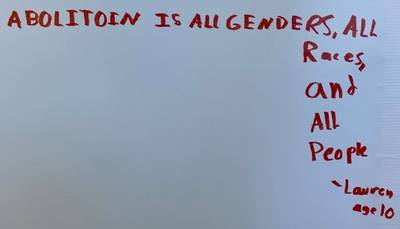 ABOLITOIN IS ALL GENDERS, ALL
Races,
and
ALL
People
~Lauren
age 10